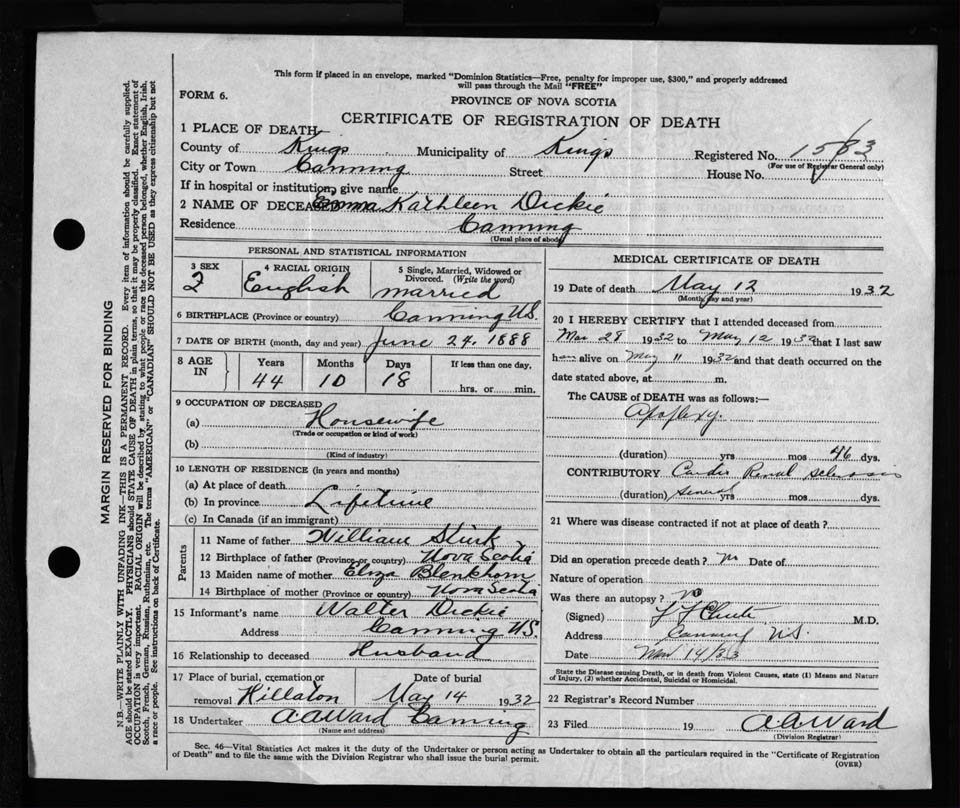 This form if placed in an envelope, marked "Dominion Statistics—Free, penalty for improper use, $300," and properly addressed
will pass through the Mail "FREE"
FORM 6.
PROVINCE OF NOVA SCOTIA
CERTIFICATE OF REGISTRATION OF DEATH
1 PLACE OF DEATH
County of Kings Municipality of Kings Registered No. 1583
(For use of Registrar General only)
City or Town Canning Street House No.
If in hospital or institution, give name
2 NAME OF DECEASED Emma Kathleen Dickie
Residence Canning
(Usual place of abode)
PERSONAL AND STATISTICAL INFORMATION
3 SEX 4 RACIAL ORIGIN 5 Single, Married, Widowed or Divorced. (Write the word)
F English married
6 BIRTHPLACE (Province or country) Canning N.S.
7 DATE OF BIRTH (month, day and year) June 24, 1888
8 AGE IN Years Months Days If less than one day,
44 10 18 hrs. or min.
9 OCCUPATION OF DECEASED
(a) Housewife
(Trade or occupation or kind of work)
(b)
(Kind of industry)
10 LENGTH OF RESIDENCE (in years and months)
(a) At place of death
(b) In province Lifetime
(c) In Canada (if an immigrant)
Parents
11 Name of father William
12 Birthplace of father (Province or country) Nova Scotia
13 Maiden name of mother Eliza Blenkhorn
14 Birthplace of mother (Province or country) Nova Scotia
15 Informant's name Walter Dickie
Address Canning N.S.
16 Relationship to deceased Husband
17 Place of burial, cremation or removal Date of burial
Hillaton May 14 1932
18 Undertaker A.A. Ward Canning
(Name and address)
MEDICAL CERTIFICATE OF DEATH
19 Date of death May 12 1932
(Month, day and year)
20 I HEREBY CERTIFY that I attended deceased from
Mar 28 1932 to May 12 1932 that I last saw
h alive on May 11 1932 and that death occurred on
date stated above, at m.
The CAUSE of DEATH was as follows:—
Apoplexy.
(duration) yrs mos 46 dys.
CONTRIBUTORY Cardio Renal sclerosis
(duration) several yrs mos dys.
21 Where was disease contracted if not at place of death?
Did an operation precede death? no Date of
Nature of operation
Was there an autopsy? no
(Signed) M.D.
Address Canning N.S.
Date 14/33
State the Disease causing Death, or in death from Violent Causes, state (1) Means and Nature of Injury, (2) whether Accidental, Suicidal or Homicidal.
22 Registrar's Record Number
23 Filed 19 A.A. Ward
(Division Registrar)
Sec. 46—Vital Statistics Act makes it the duty of the Undertaker or person acting as Undertaker to obtain all the particulars required in the "Certificate of Registration
of Death" and to file the same with the Division Registrar who shall issue the burial permit.
(OVER)
MARGIN RESERVED FOR BINDING
N.B.—WRITE PLAINLY WITH UNFADING INK—THIS IS A PERMANENT RECORD. Every item of information should be carefully supplied.
AGE should be stated EXACTLY. PHYSICIANS should STATE CAUSE OF DEATH in plain terms, so that it may be properly classified. Exact statement of
OCCUPATION is very important. RACIAL ORIGIN will be described by stating to what people or race the deceased person belonged, whether English, Irish,
Scotch, French, German, Russian, Ruthenian, etc. The terms "AMERICAN" or "CANADIAN" SHOULD NOT BE USED as they express citizenship but not
a race or people. See instructions on back of Certificate.